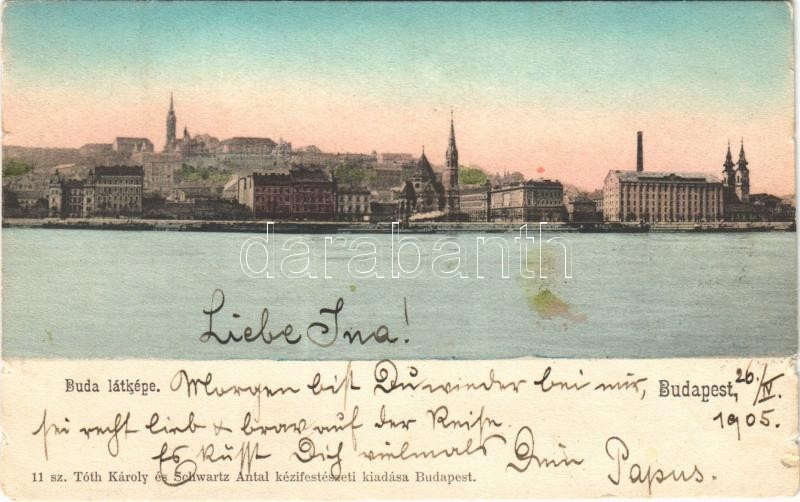 darabanth
Liebe Ina!
Buda látképe. Morgen bist Du wieder bei mir, Budapest, 26./IV.
sei recht lieb & brav auf der Reise. 1905.
Es küsst Dich vielmals Dein Papus.
11 sz. Tóth Károly és Schwartz Antal kézifestészeti kiadása Budapest.